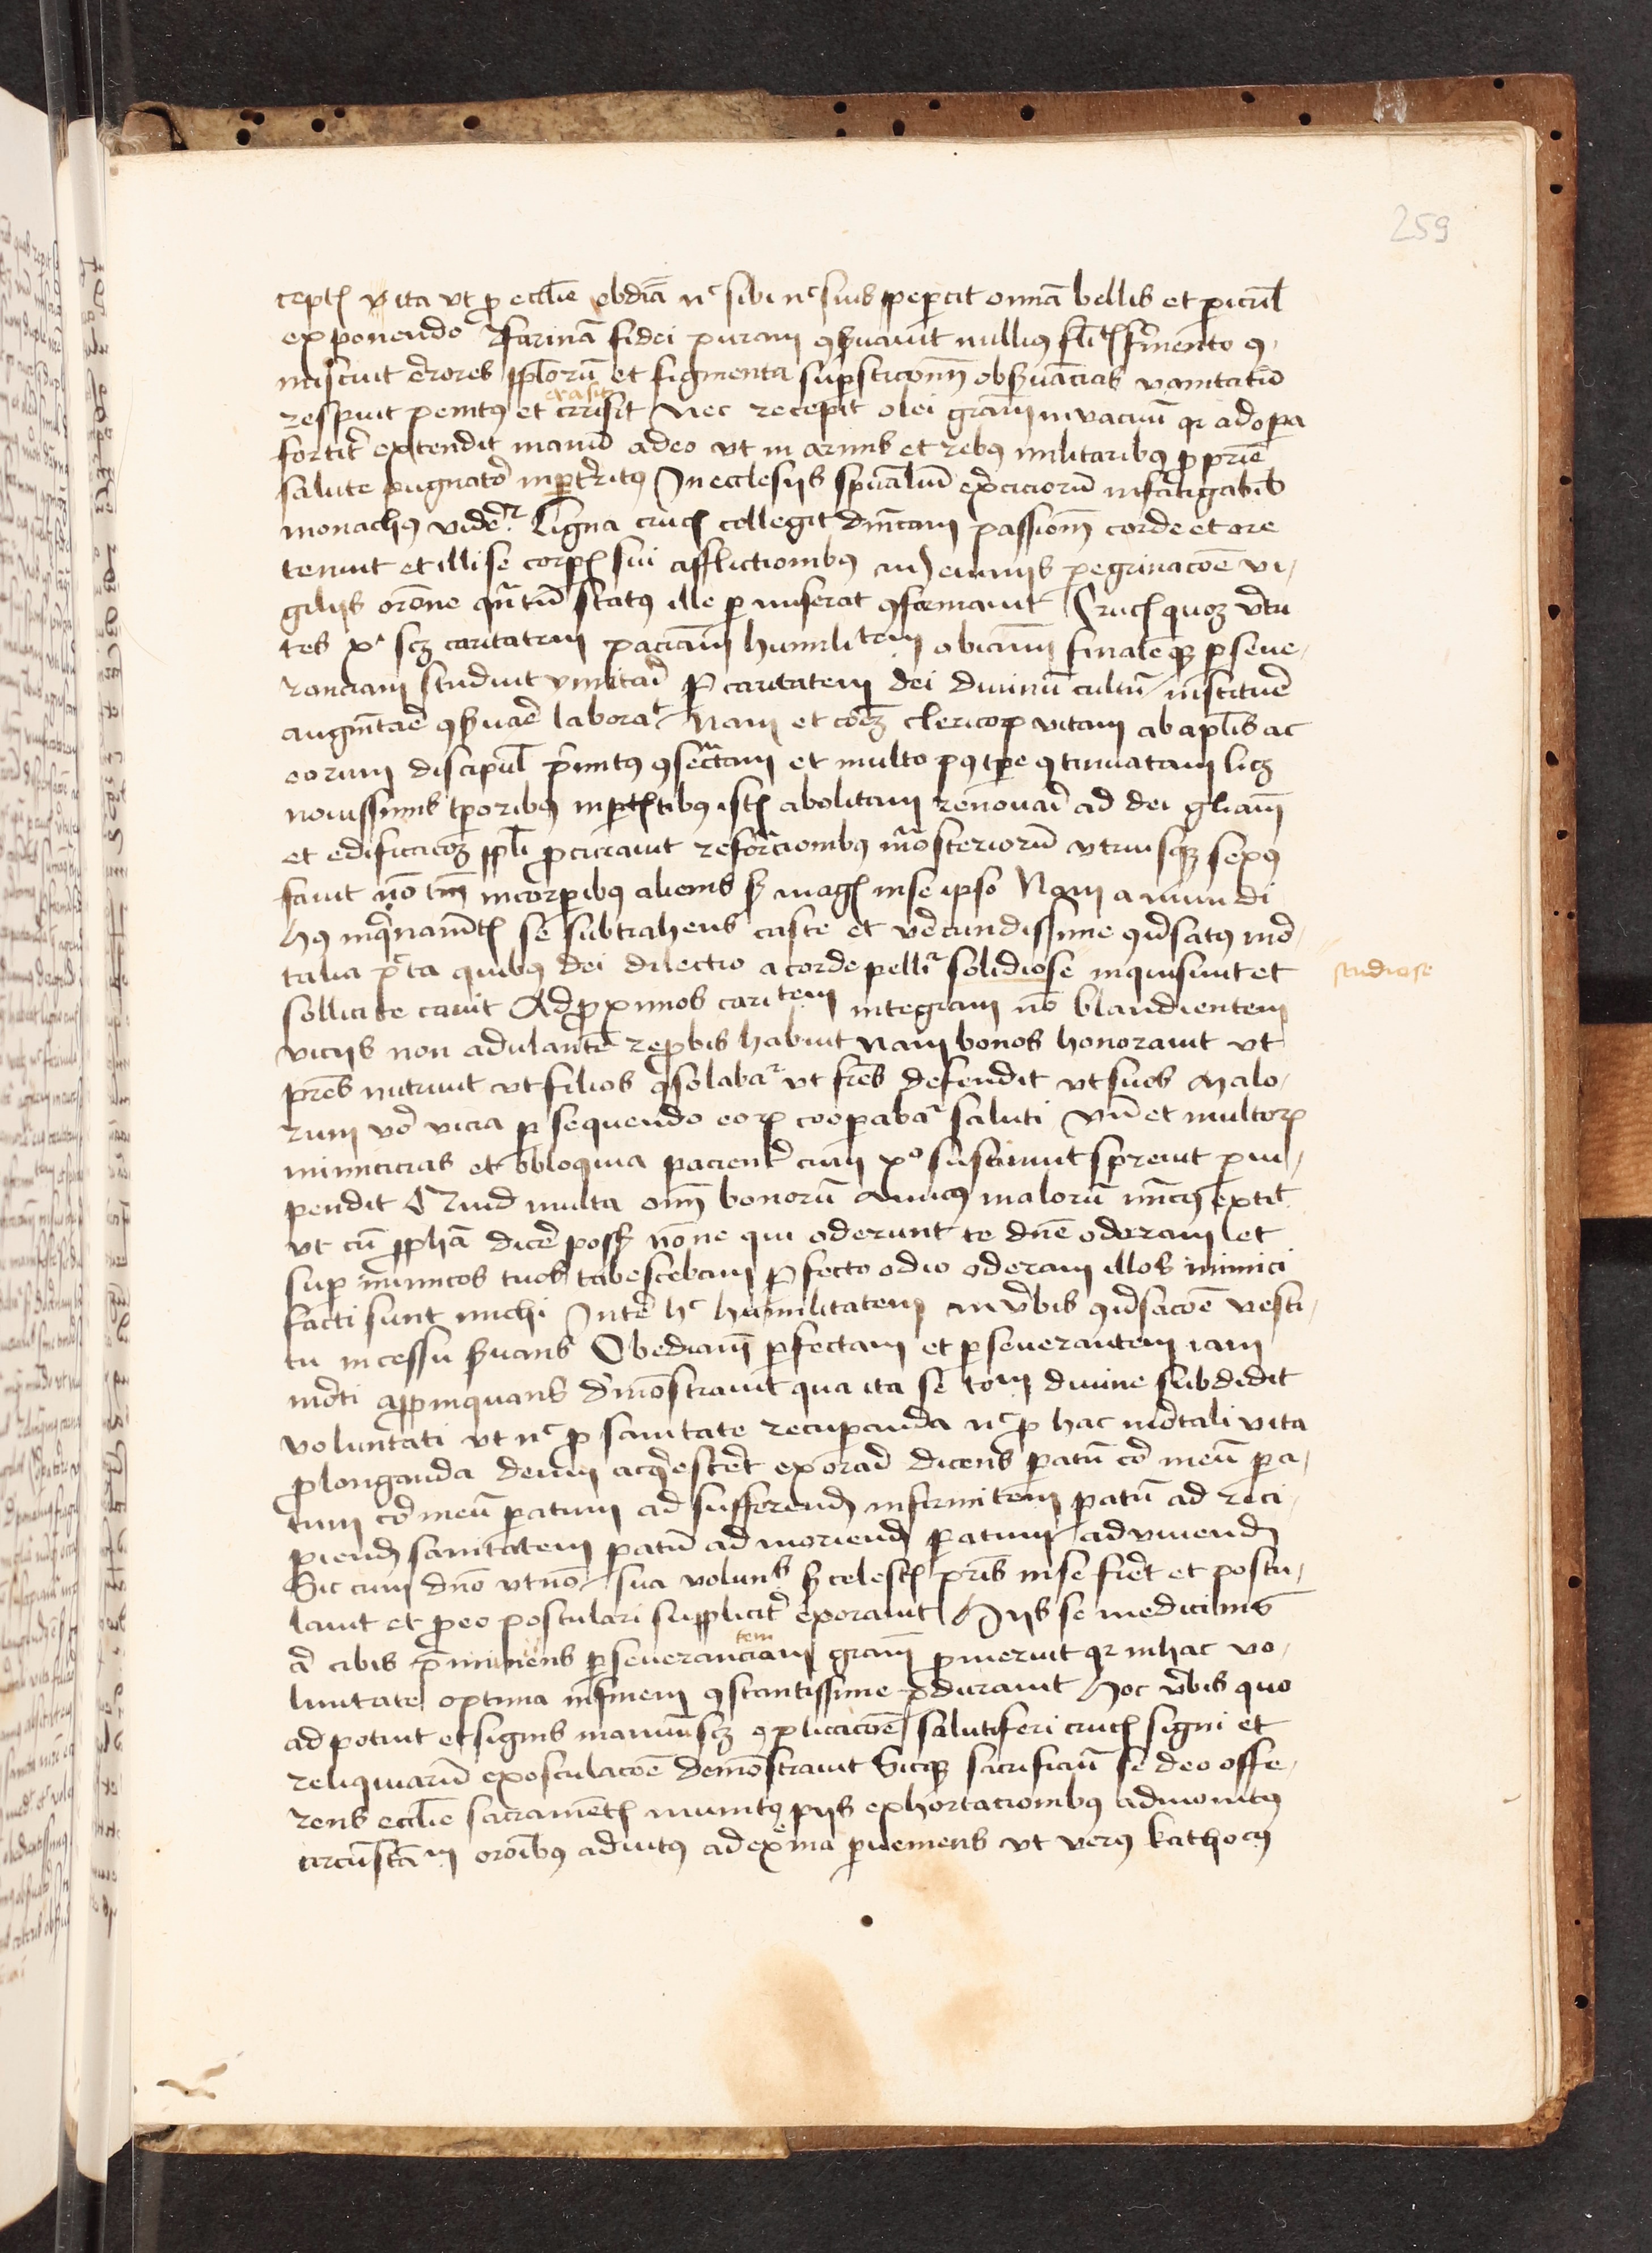 259
ceptꝭ v ita vt ꝓ eccl̄ie obdiā nͨ sibi nͨ suis pepercit om̄a bellis et pericul̄
exponendo Farinā fidei puram ꝯẜuauit nulliꝰ fermento ꝯ-
miscuit errores pplorū et figmenta supersticionū obẜuācias vanitatū
respuit penitꝰ et irrisit Nec recepit olei gram̄ in vacuū qr ad opa
fortit̉ extendit manū adeo vt in armis et rebꝰ militaribꝰ ꝓ prie
salute pugnator̉ inpterritꝰ In ecclesijs spūaliū exerciciorū infatigabil̄
monachꝰ videret᷑ Ligna crucꝭ collegit dn̄icam passionē corde et ore
tenuit et illi se corpꝭ sui afflictionibꝰ ieiunijs peregrinacoē vi-
gilijs oroñe qn̄tū statꝰ ille permiserat ꝯformauit Crucꝭ quoqꝫ v̉tu
tes xͥ scꝫ caritatem pacienciā humilitatem obienciā finalēqꝫ perseue-
ranciam studuit imitari Per caritatem dei diuinū cultū instituē
augmentare ꝯẜuare laborat Nam et coēꝫ clericorꝝ vitam ab apl̄is ac
eorum discipul̄ primitꝰ ꝯsecratam et multo pꝰ tpe ꝯtinuatam licꝫ
nouissimis tporibꝰ in ptibꝰ istꝭ abolitam renouari ad dei gl̄iam
et edificacoēꝫ ppl̄i procurauit reformacionibꝰ monasteriorū vtriusqꝫ sexꝰ
fauit nō tm̄ in corporibꝰ alienis sꝫ magꝭ in se ipso Nam a mundi
hꝰ inquinamentꝭ se subtrahens caste et verecundissime ꝯuersatꝰ mor
talia peccata quibꝰ dei dilectio a corde pellit᷑ solidiose inquisiuit et
sollicite cauit Ad proximos caritatem integram nō blandientem
vicijs non adulantē reprobis habuit nam bonos honorauit vt
pres̄ nutriuit vt filios ꝯsolabat᷑ vt fres̄ defendit vt suos Malo-
rum vero vicia persequendo eorꝝ cooperabat᷑ saluti Vn̄ et multorꝝ
inimicicias et obloquia pacient̉ cum xͦ sustinuit spreuit paui-
pendit Quid multa omniū bonorū amicꝰ malorū inimicꝰ extit
vt cū ppha dicere possꝫ nonne qui oderunt te dn̄e oderam et
super inimicos tuos tabescebam Perfecto odio oderam illos inimici
facti sunt michi Inter hͨ humilitatem in verbis ꝯuersacoē vesti-
tu incessu ẜuans Obedianciā perfectam et perseuerantem iam
morti appropinquans demonstrauit qua ita se totum diuine subdidit
voluntati vt nͨ pro sanitate recuperanda nͨ pro hac mortali vita
prolonganda deum acquiescerēt exorare dicens paratū cor meū para-
tum cor meū paratum ad sufferendū infirmitatem paratū ad reci-
piendū sanitatem paratū ad moriendū paratum ad viuendū
Sic cum dn̄o vt nō sua voluntas sꝫ celestꝭ pris̄ in se fieret et postu-
lauit et pro eo postulari suppliciter exorauit Hijs se medicinis
ac cibis premuniens perseueranciam gram̄ promeruit qr in hac vo-
luntate optima in finem ꝯstantissime perdurauit Hoc verbis quo
ad potuit et signis manuum scꝫ ꝯplicacoē salutiferi crucꝭ signi et
reliquiarū exosculacoē demonstrauit Sicqꝫ sacrificiū se deo offe-
rens eccl̄ie sacramentꝭ munitꝰ pijs exhortacionibꝰ admonitus
circūstanciū oroibꝰ adiutꝰ ad extrema perueniens vt verꝰ katholicꝰ
euasit
studiose
tem